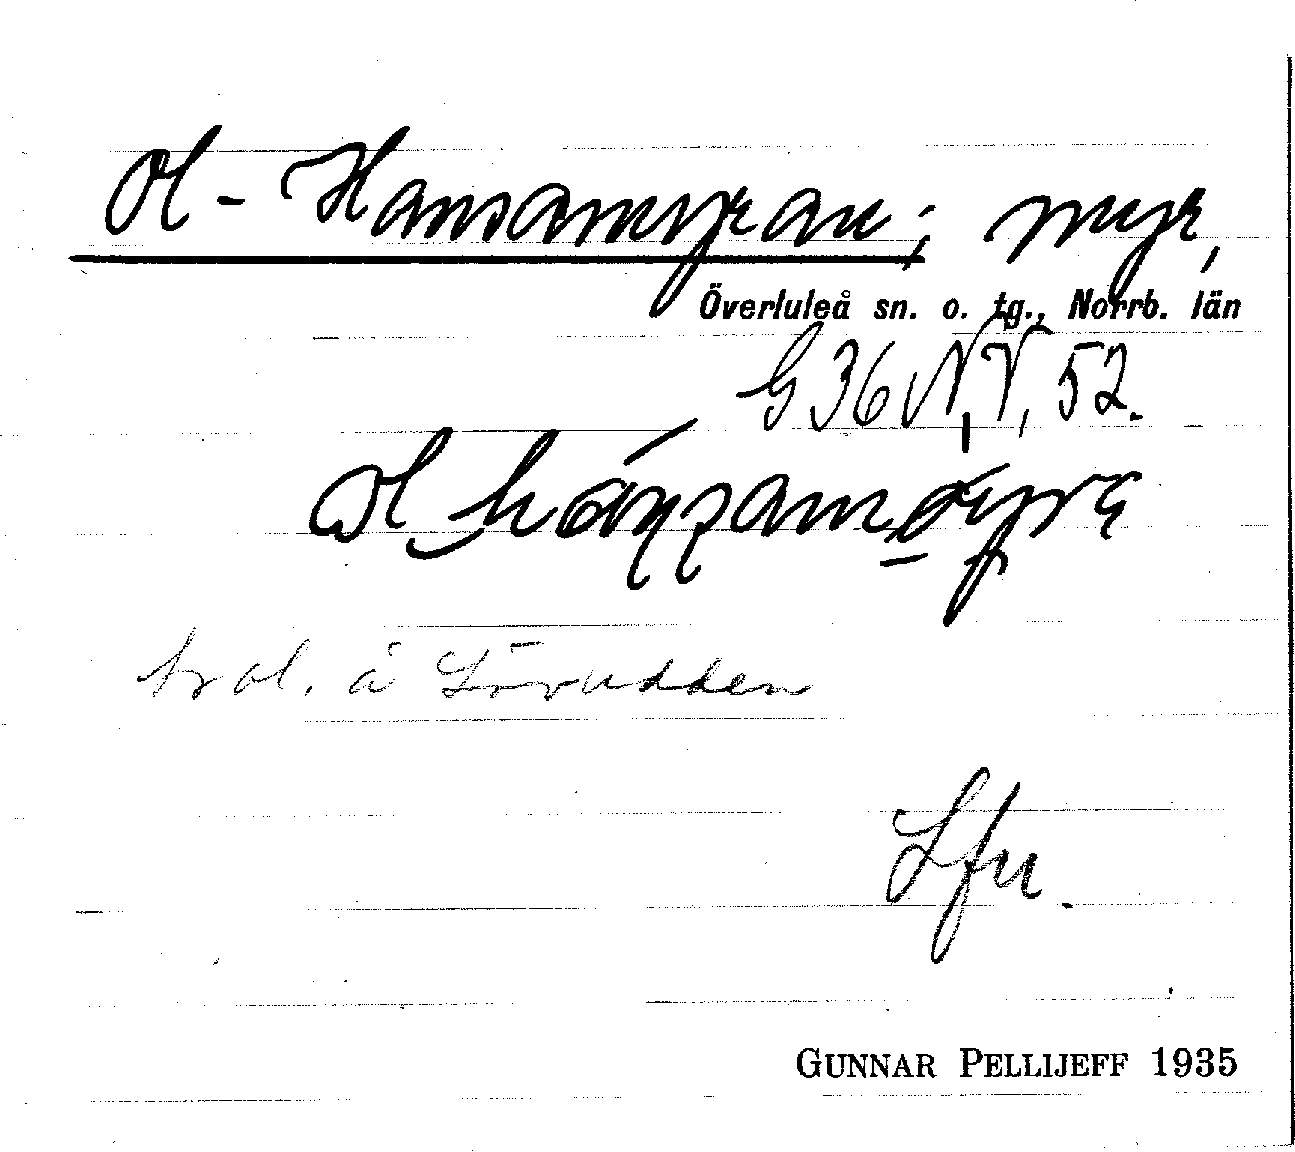 Ol-Hansamyran; myr,
Överluleå sn. o. tg., Norrb. län
G 36 N, V, 52.
trol. å Lövudden
Lfn.
GUNNAR PELLIJEFF 1935